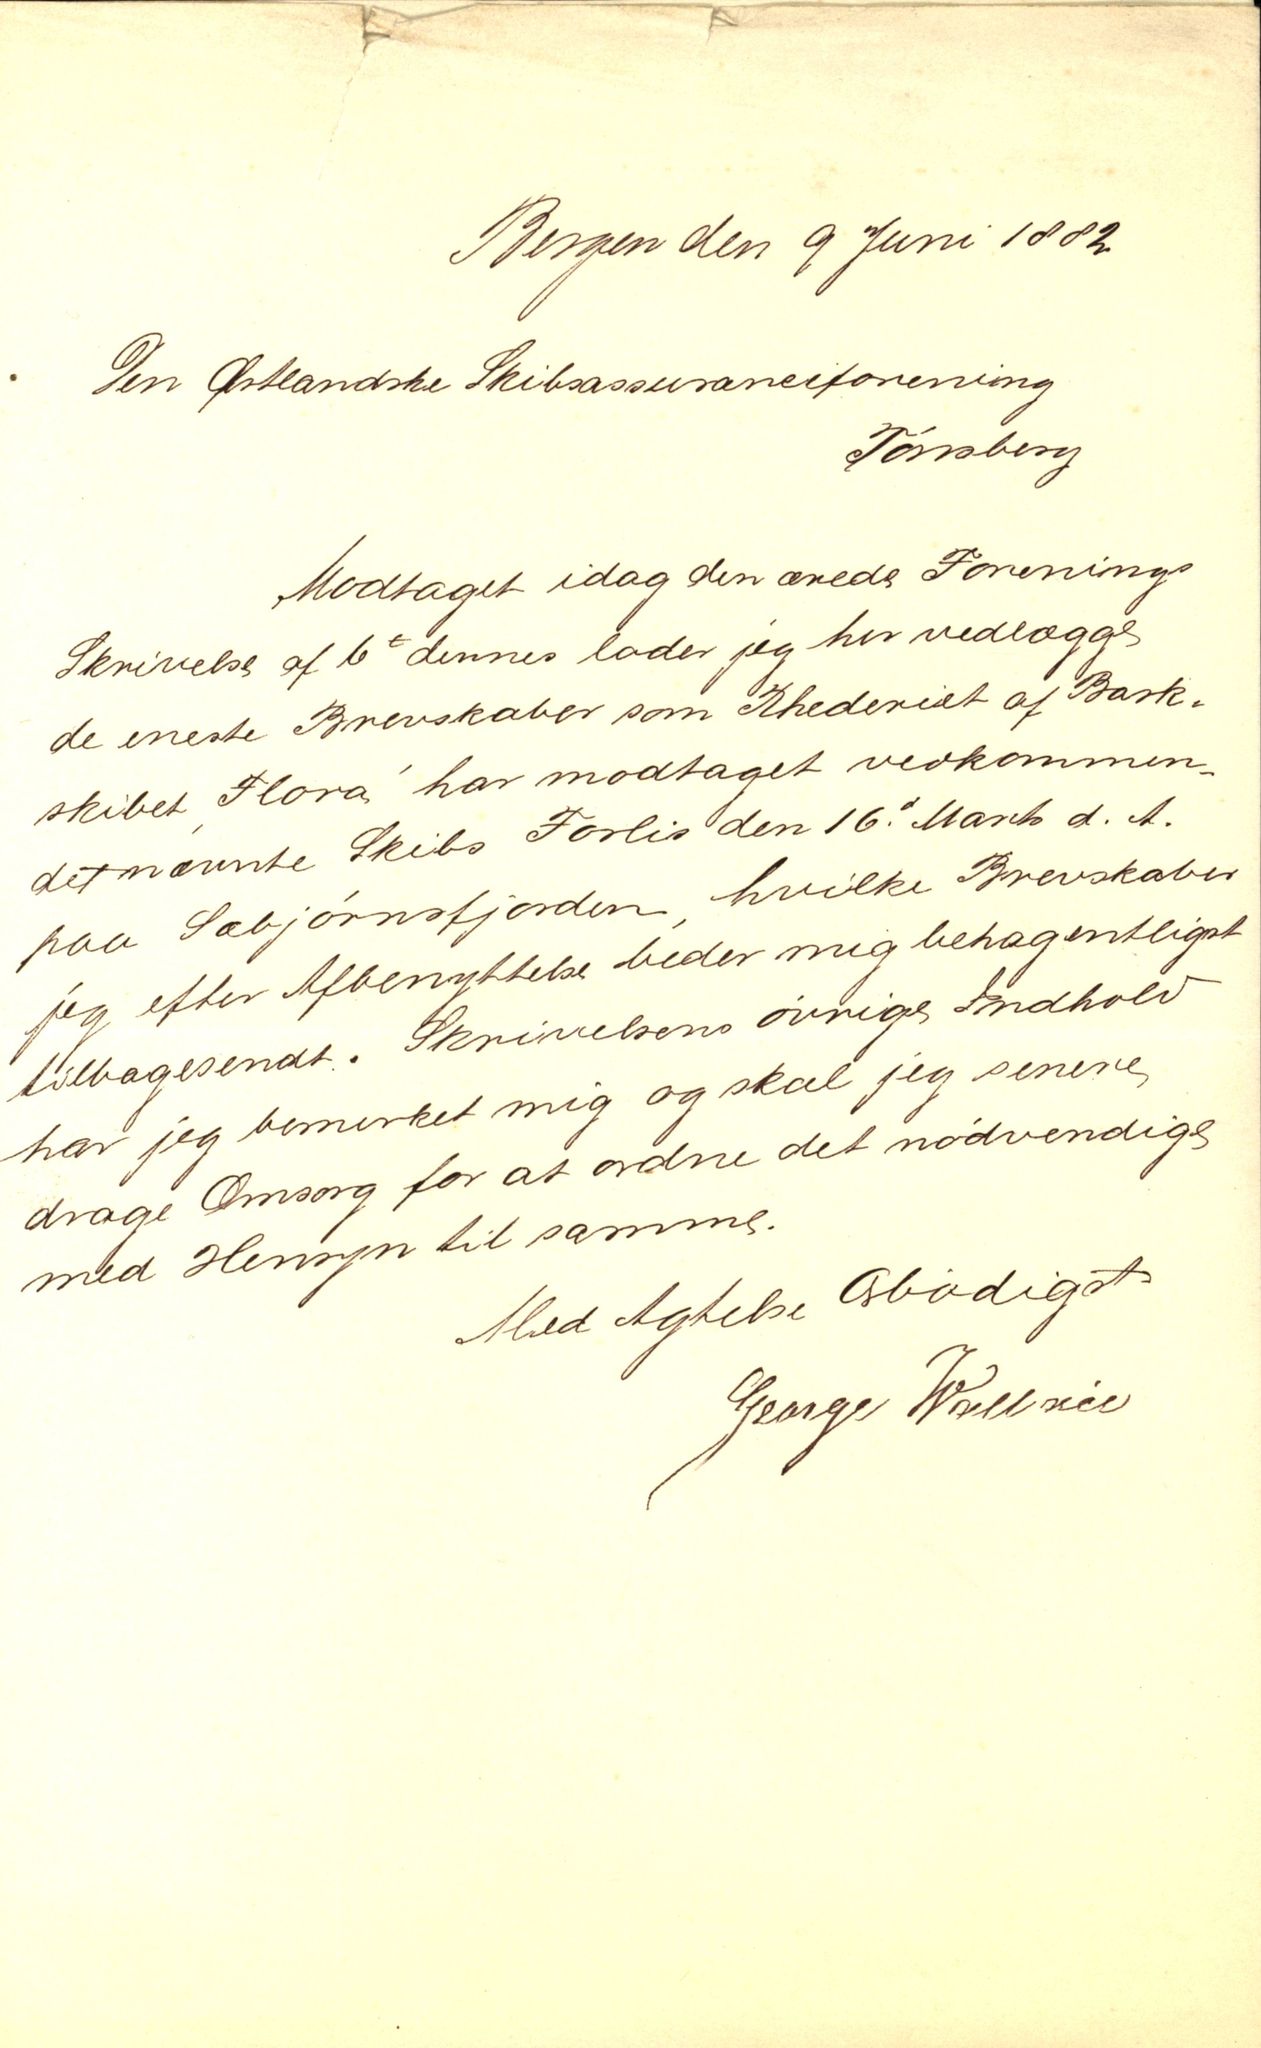 Bergen den 9 Juni 1882
Den Østlandske Skibsassuranceforening
Tönsberg
Modtaget idag den ærede Forenings
Skrivelse af 6t dennes lader jeg her vedlægge
de eneste Brevskaber som Rhederiet af Bark-
skibet „Flora" har modtaget vedkommen-
det nævnte Skibs Forlis den 16d Marts d. A.
paa Sæbjörnsfjorden, hvilke Brevskaber
jeg efter Afbenyttelse beder mig behagentligst
tilbagesendt. Skrivelsens övrige Indhold
har jeg bemerket mig og skal jeg senere
drage Omsorg for at ordne det nödvendige
med Hensyn til samme.
Med Agtelse Ærbödigst
George